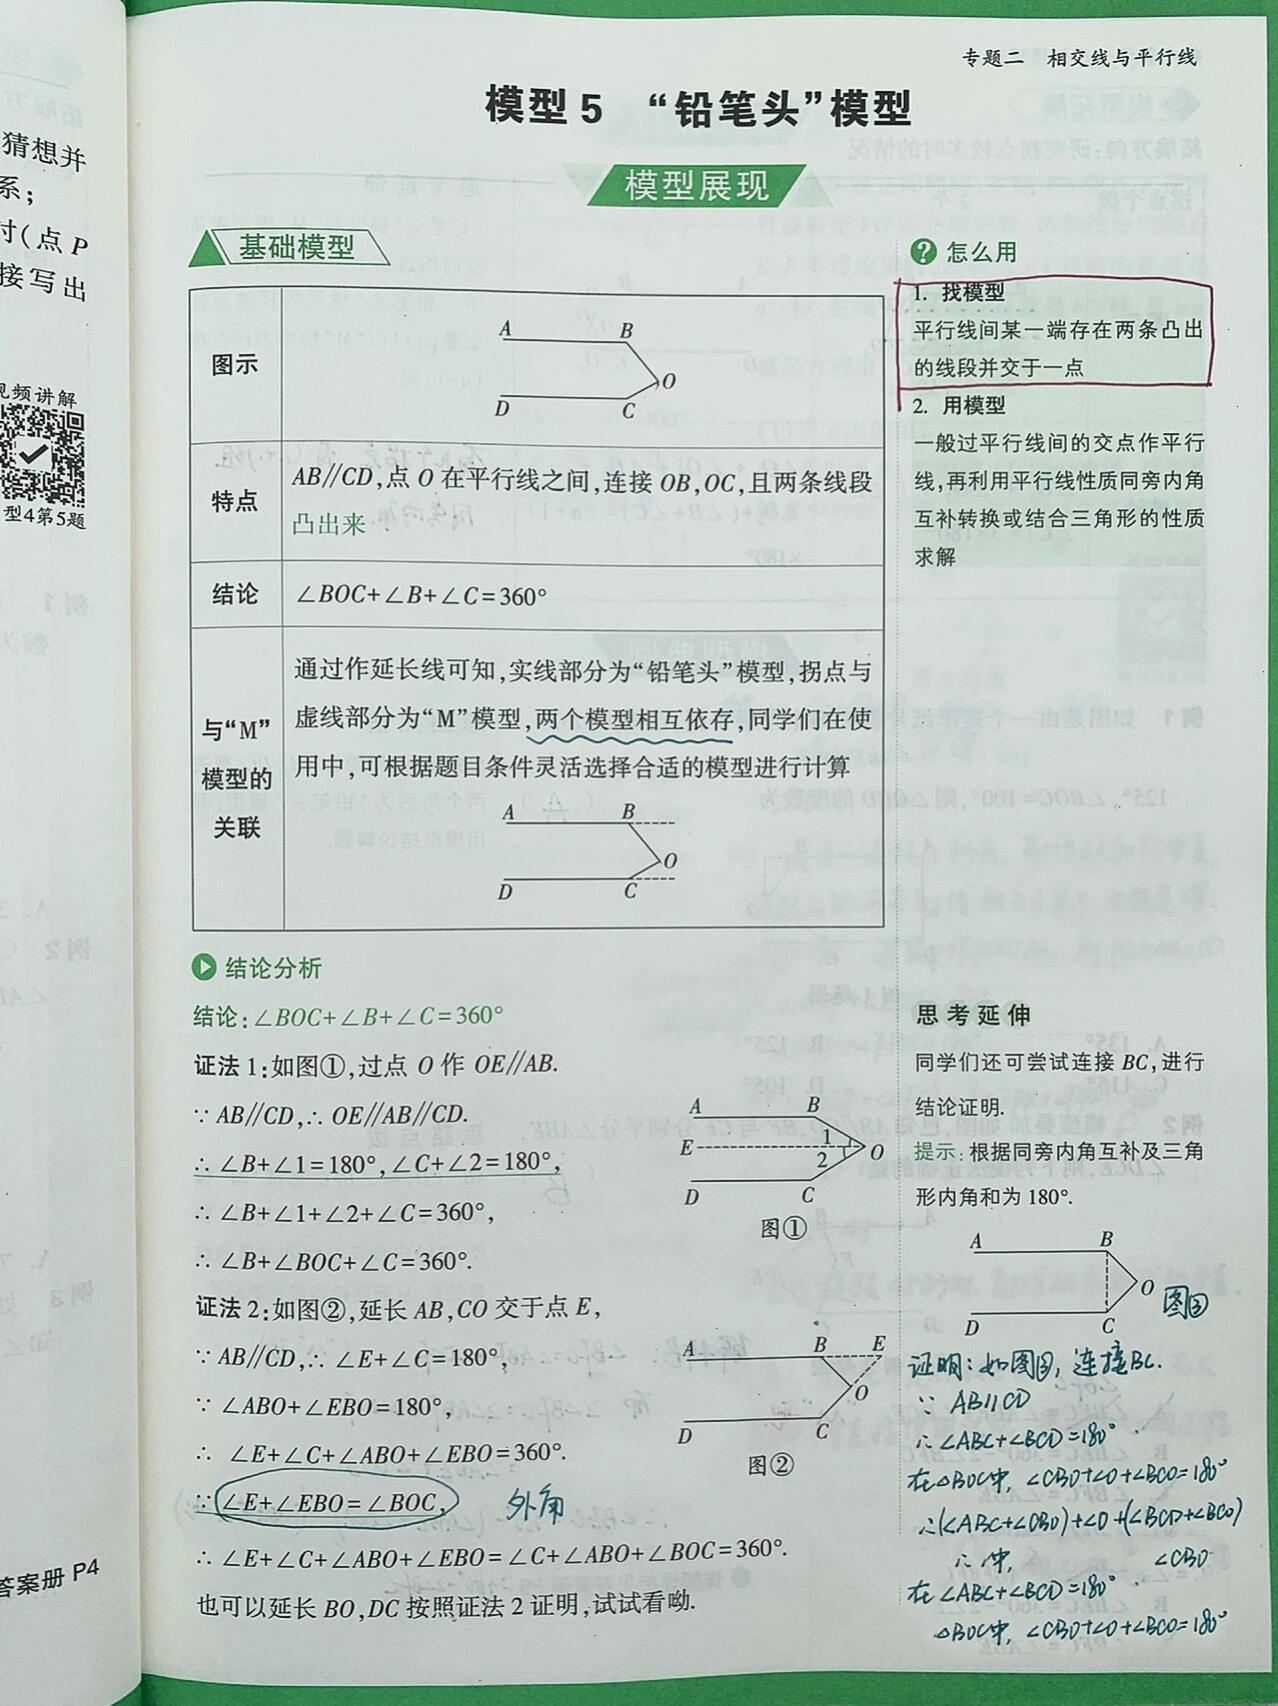 专题二 相交线与平行线
模型 5 “铅笔头”模型
模型展现
猜想并
系；
寸(点 P
接写出
视频讲解
型4第5题
答案册 P4
基础模型
图示
A B
O
D C
特点
AB∥CD,点 O 在平行线之间,连接 OB,OC,且两条线段
凸出来
结论
∠BOC+∠B+∠C=360°
与“M”
模型的
关联
通过作延长线可知,实线部分为“铅笔头”模型,拐点与
虚线部分为“M”模型,两个模型相互依存,同学们在使
用中,可根据题目条件灵活选择合适的模型进行计算
A B
O
D C
? 怎么用
1. 找模型
平行线间某一端存在两条凸出
的线段并交于一点
2. 用模型
一般过平行线间的交点作平行
线,再利用平行线性质同旁内角
互补转换或结合三角形的性质
求解
结论分析
结论:∠BOC+∠B+∠C=360°
证法 1:如图①,过点 O 作 OE∥AB.
∵ AB∥CD,∴ OE∥AB∥CD.
∴ ∠B+∠1=180°,∠C+∠2=180°,
∴ ∠B+∠1+∠2+∠C=360°,
∴ ∠B+∠BOC+∠C=360°.
A B
E 1 2 O
D C
图①
证法 2:如图②,延长 AB,CO 交于点 E,
∵ AB∥CD,∴ ∠E+∠C=180°,
∵ ∠ABO+∠EBO=180°,
∴ ∠E+∠C+∠ABO+∠EBO=360°.
∵ ∠E+∠EBO=∠BOC,
外角
∴ ∠E+∠C+∠ABO+∠EBO=∠C+∠ABO+∠BOC=360°.
也可以延长 BO,DC 按照证法 2 证明,试试看呦.
A B E
O
D C
图②
思考延伸
同学们还可尝试连接 BC,进行
结论证明.
提示:根据同旁内角互补及三角
形内角和为 180°.
A B
O
D C
图③
证明：如图③，连接BC.
∵ AB∥CD
∴∠ABC+∠BCD=180°
在△BOC中, ∠CBO+∠O+∠BCO=180°
∴(∠ABC+∠CBO)+∠O+(∠BCD+∠BCO)
∠CBO
在∠ABC+∠BCD=180°
△BOC中, ∠CBO+∠O+∠BCO=180°